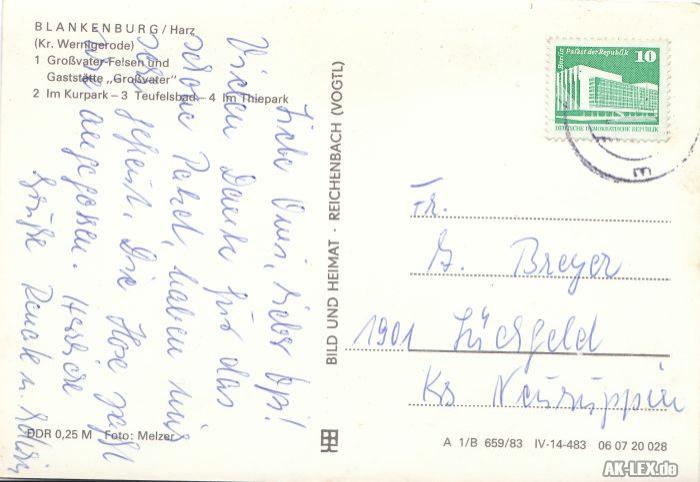 BLANKENBURG / Harz
(Kr. Wernigerode)
1 Großvater-Felsen und
Gaststätte „Großvater"
2 Im Kurpark – 3 Teufelsbad – 4 Im Thiepark
Liebe Omi, lieber Opi!
Vielen Dank für das
schöne Paket, haben uns
sehr gefreut. Die Hose paßt
wie angegossen. Herzliche
Grüße
DDR 0,25 M Foto: Melzer
BILD UND HEIMAT · REICHENBACH (VOGTL)
Berlin Palast der Republik 10
DEUTSCHE DEMOKRATISCHE REPUBLIK
Fr.
G. Breyer
1901 Lüchfeld
Krs Neuruppin
A 1/B 659/83 IV-14-483 06 07 20 028
AK-LEX.de